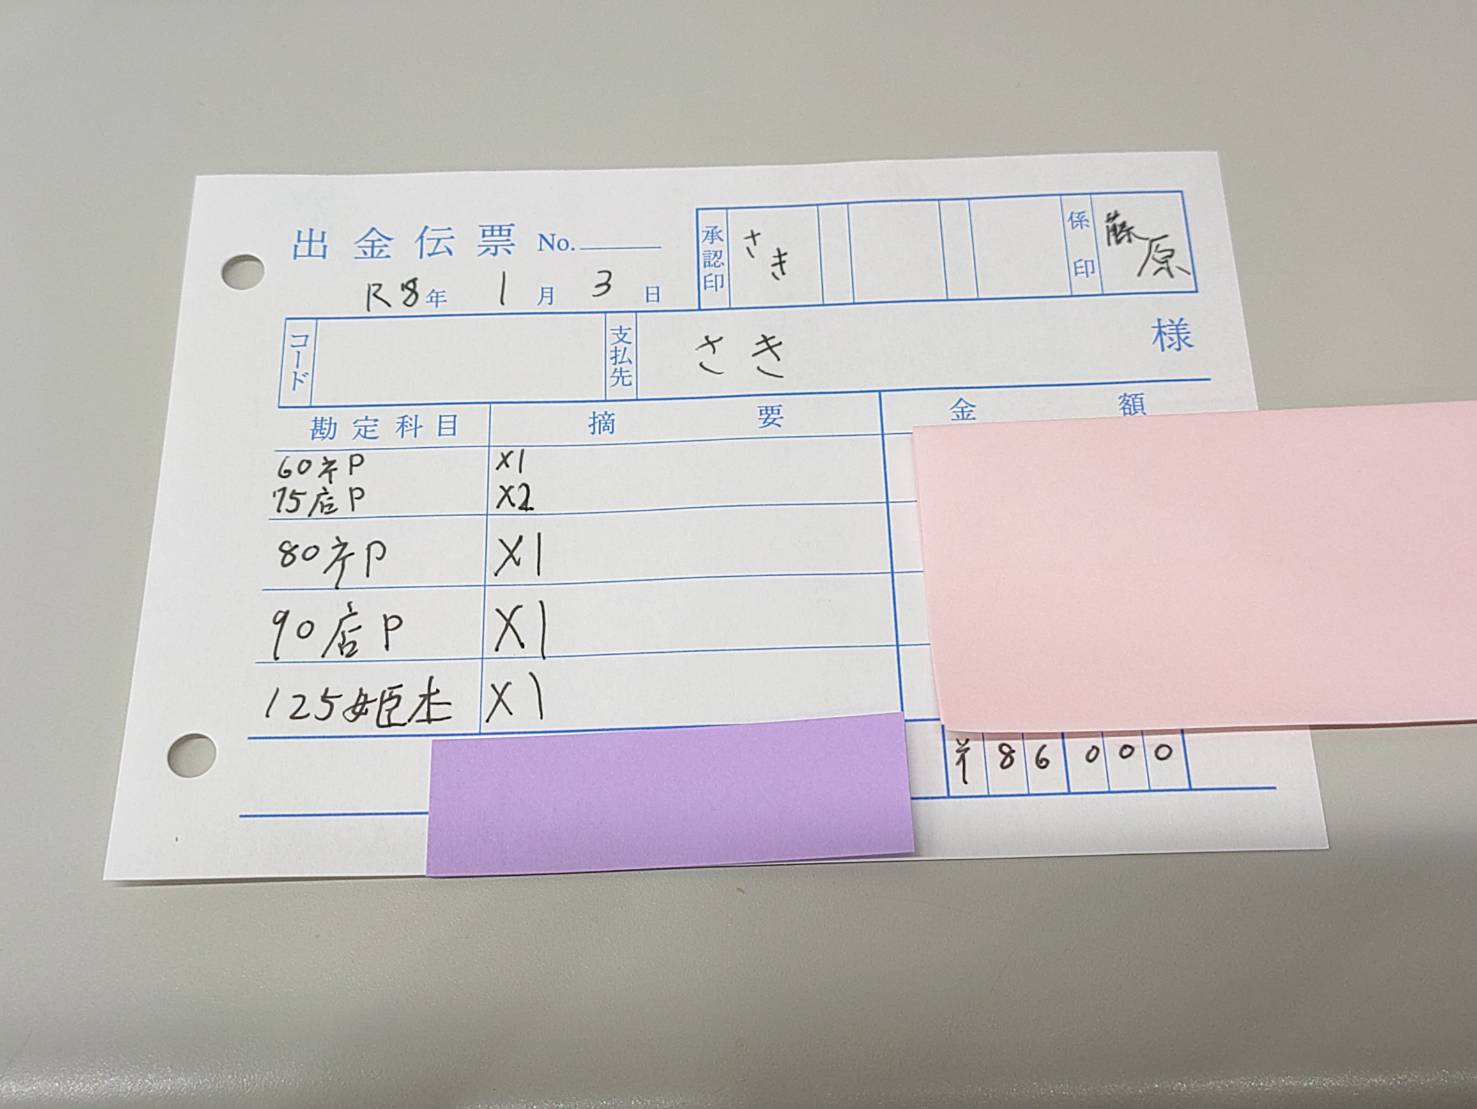 出金伝票 No.
承認印 さき 係印 藤原
R8年 1月 3日
コード 支払先 さき 様
勘定科目 摘要 金額
60ネP ×1
75店P ×2
80ネP ×1
90店P ×1
125姫本 ×1
¥86000